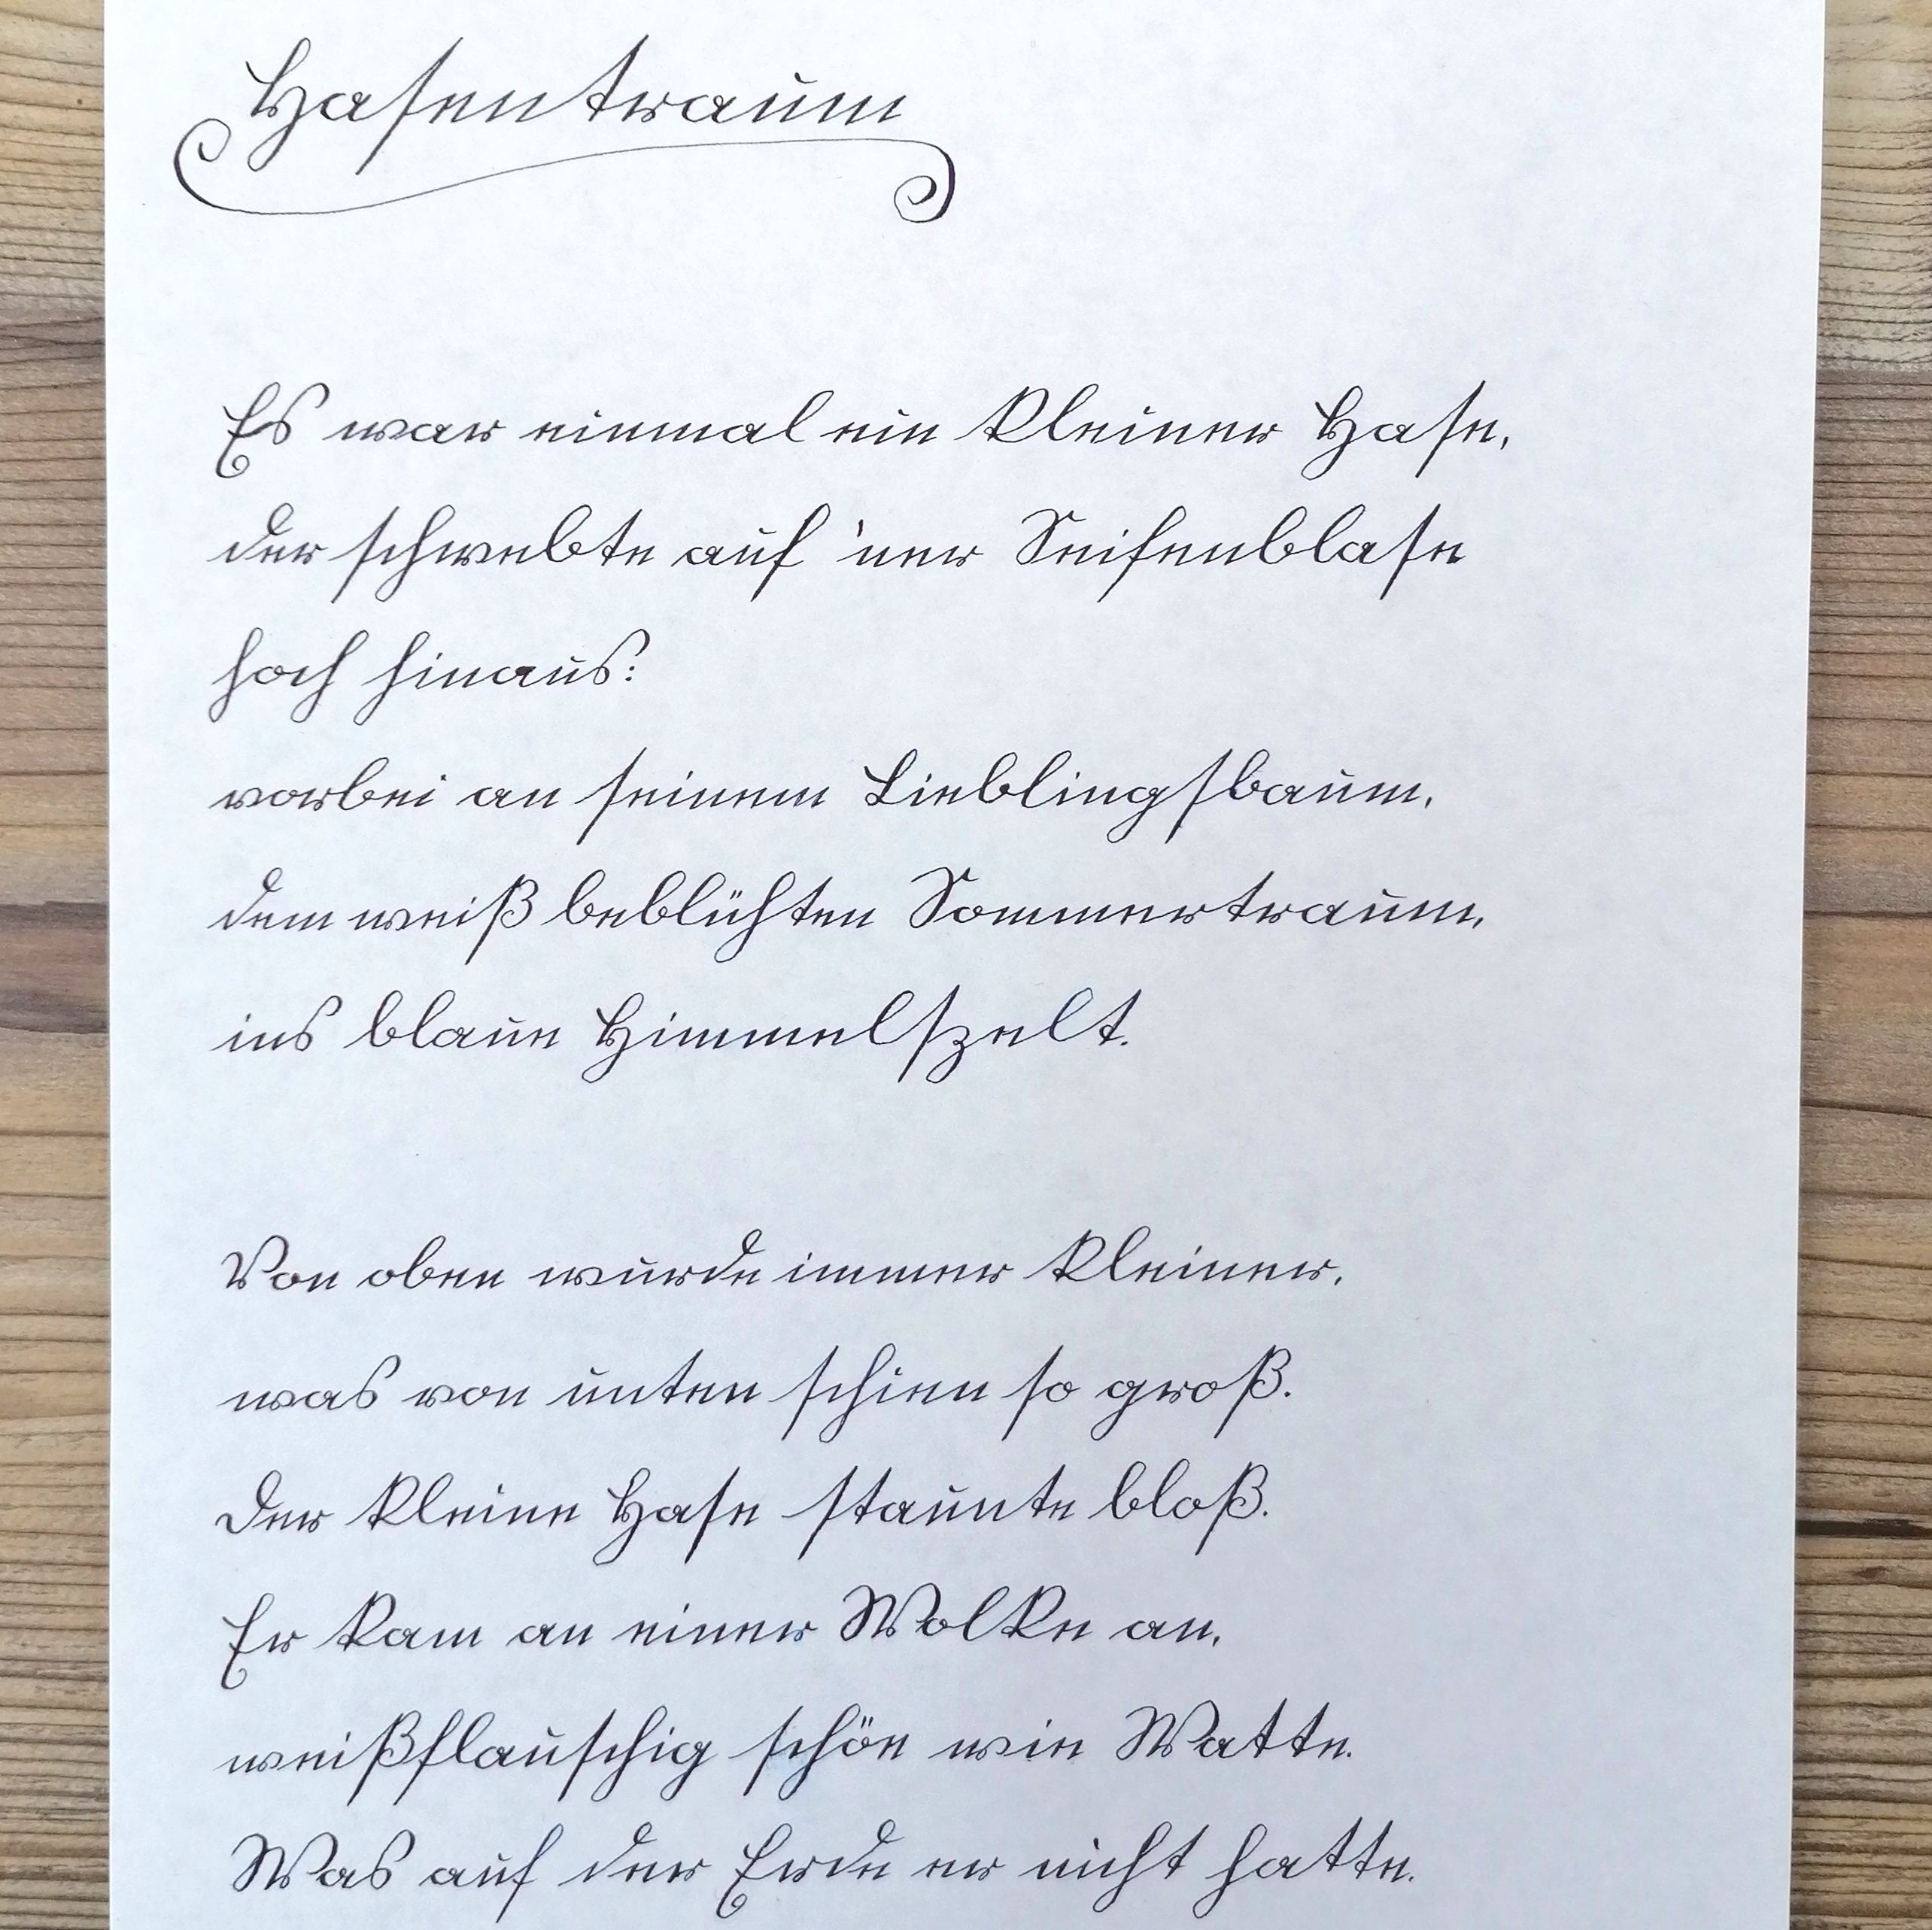 Hasentraum
Es war einmal ein kleiner Hase,
der schwebte auf 'ner Seifenblase
hoch hinaus:
vorbei an seinem Lieblingsbaum,
dem weiß beblühten Sommertraum,
ins blaue Himmelszelt.
Von oben wurde immer kleiner,
was von unten schien so groß.
Der kleine Hase staunte bloß.
Er kam an einer Wolke an,
weißflauschig schön wie Watte.
Was auf der Erde er nicht hatte.